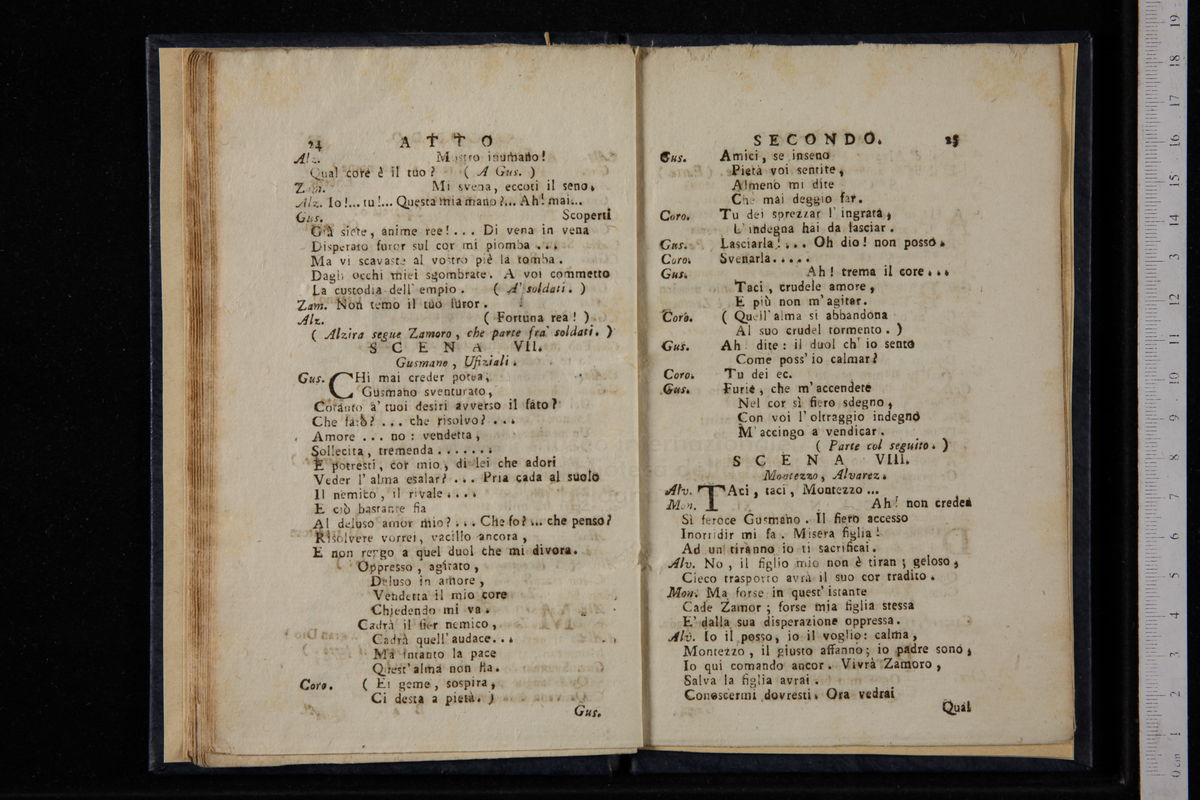 24 ATTO
Alz. Mostro inumano!
Qual core è il tuo? ( A Gus. )
Zam. Mi svena, eccoti il seno.
Alz. Io!... tu!... Questa mia mano?... Ah! mai...
Gus. Scoperti
Già siete, anime ree!... Di vena in vena
Disperato furor sul cor mi piomba ...
Ma vi scavaste al vostro piè la tomba.
Dagli occhi miei sgombrate. A voi commetto
La custodia dell' empio. ( A' soldati. )
Zam. Non temo il tuo furor.
Alz. ( Fortuna rea! )
( Alzira segue Zamoro, che parte fra' soldati. )
SCENA VII.
Gusmano, Ufiziali.
Gus. CHi mai creder potea,
Gusmano sventurato,
Cotanto a' tuoi desiri avverso il fato?
Che farò? ... che risolvo? ...
Amore ... no: vendetta,
Sollecita, tremenda .......
E potresti, cor mio, di lei che adori
Veder l' alma esalar? ... Pria cada al suolo
Il nemico, il rivale ....
E ciò bastante fia
Al deluso amor mio? ... Che fo? ... che penso?
Risolvere vorrei, vacillo ancora,
E non reggo a quel duol che mi divora.
Oppresso, agitato,
Deluso in amore,
Vendetta il mio core
Chiedendo mi va.
Cadrà il fier nemico,
Cadrà quell' audace...
Ma intanto la pace
Quest' alma non ha.
Coro. ( Ei geme, sospira,
Ci desta a pietà. )
Gus.
SECONDO. 25
Gus. Amici, se inseno
Pietà voi sentite,
Almeno mi dite
Che mai deggio far.
Coro. Tu dei sprezzar l' ingrata,
L' indegna hai da lasciar.
Gus. Lasciarla!... Oh dio! non posso.
Coro. Svenarla.....
Gus. Ah! trema il core...
Taci, crudele amore,
E più non m' agitar.
Coro. ( Quell' alma si abbandona
Al suo crudel tormento. )
Gus. Ah dite: il duol ch' io sento
Come poss' io calmar?
Coro. Tu dei ec.
Gus. Furie, che m' accendete
Nel cor sì fiero sdegno,
Con voi l' oltraggio indegno
M' accingo a vendicar.
( Parte col seguito. )
SCENA VIII.
Montezzo, Alvarez.
Alv. TAci, taci, Montezzo ...
Mon. Ah! non credea
Sì feroce Gusmano. Il fiero accesso
Inorridir mi fa. Misera figlia!
Ad un tiranno io ti sacrificai.
Alv. No, il figlio mio non è tiran; geloso,
Cieco trasporto avrà il suo cor tradito.
Mon. Ma forse in quest' istante
Cade Zamor; forse mia figlia stessa
E' dalla sua disperazione oppressa.
Alv. Io il posso, io il voglio: calma,
Montezzo, il giusto affanno; io padre sono,
Io qui comando ancor. Vivrà Zamoro,
Salva la figlia avrai.
Conoscermi dovresti. Ora vedrai
Qual
0 cm 1 2 3 4 5 6 7 8 9 10 11 12 13 14 15 16 17 18 19